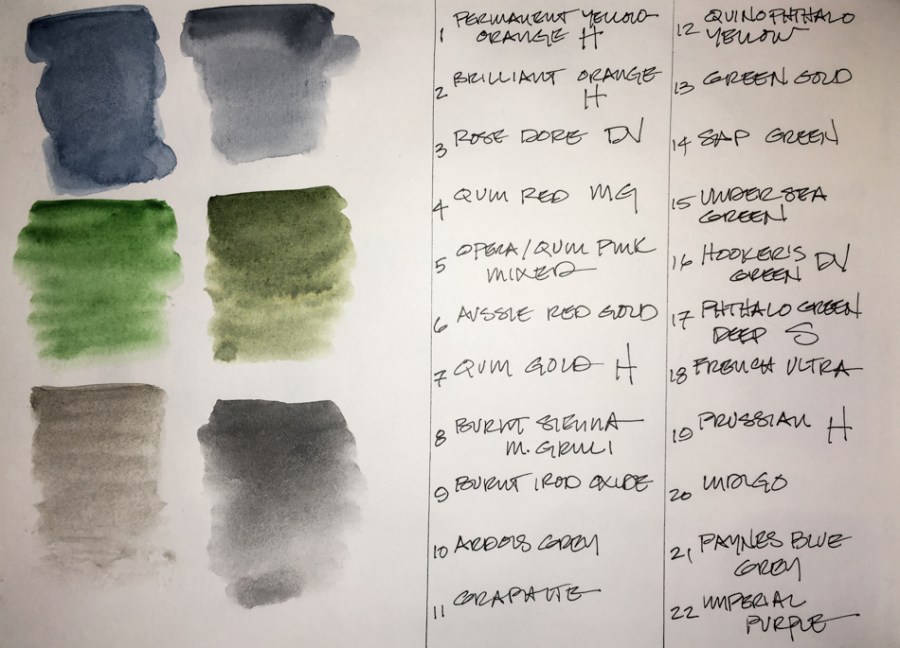 1 PERMANENT YELLOW
ORANGE H
2 BRILLIANT ORANGE
H
3 ROSE DORE DV
4 QUIN RED MG
5 OPERA/QUIN PINK
MIXED
6 AUSSIE RED GOLD
7 QUIN GOLD H
8 BURNT SIENNA
M.
9 BURNT IRON OXIDE
10 ARDOIS GREY
11 GRAPHITE
12 QUINOPHTHALO
YELLOW
13 GREEN GOLD
14 SAP GREEN
15 UNDERSEA
GREEN
16 HOOKER'S
GREEN DV
17 PHTHALO GREEN
DEEP S
18 FRENCH ULTRA
19 PRUSSIAN H
20 INDIGO
21 PAYNES BLUE
GREY
22 IMPERIAL
PURPLE